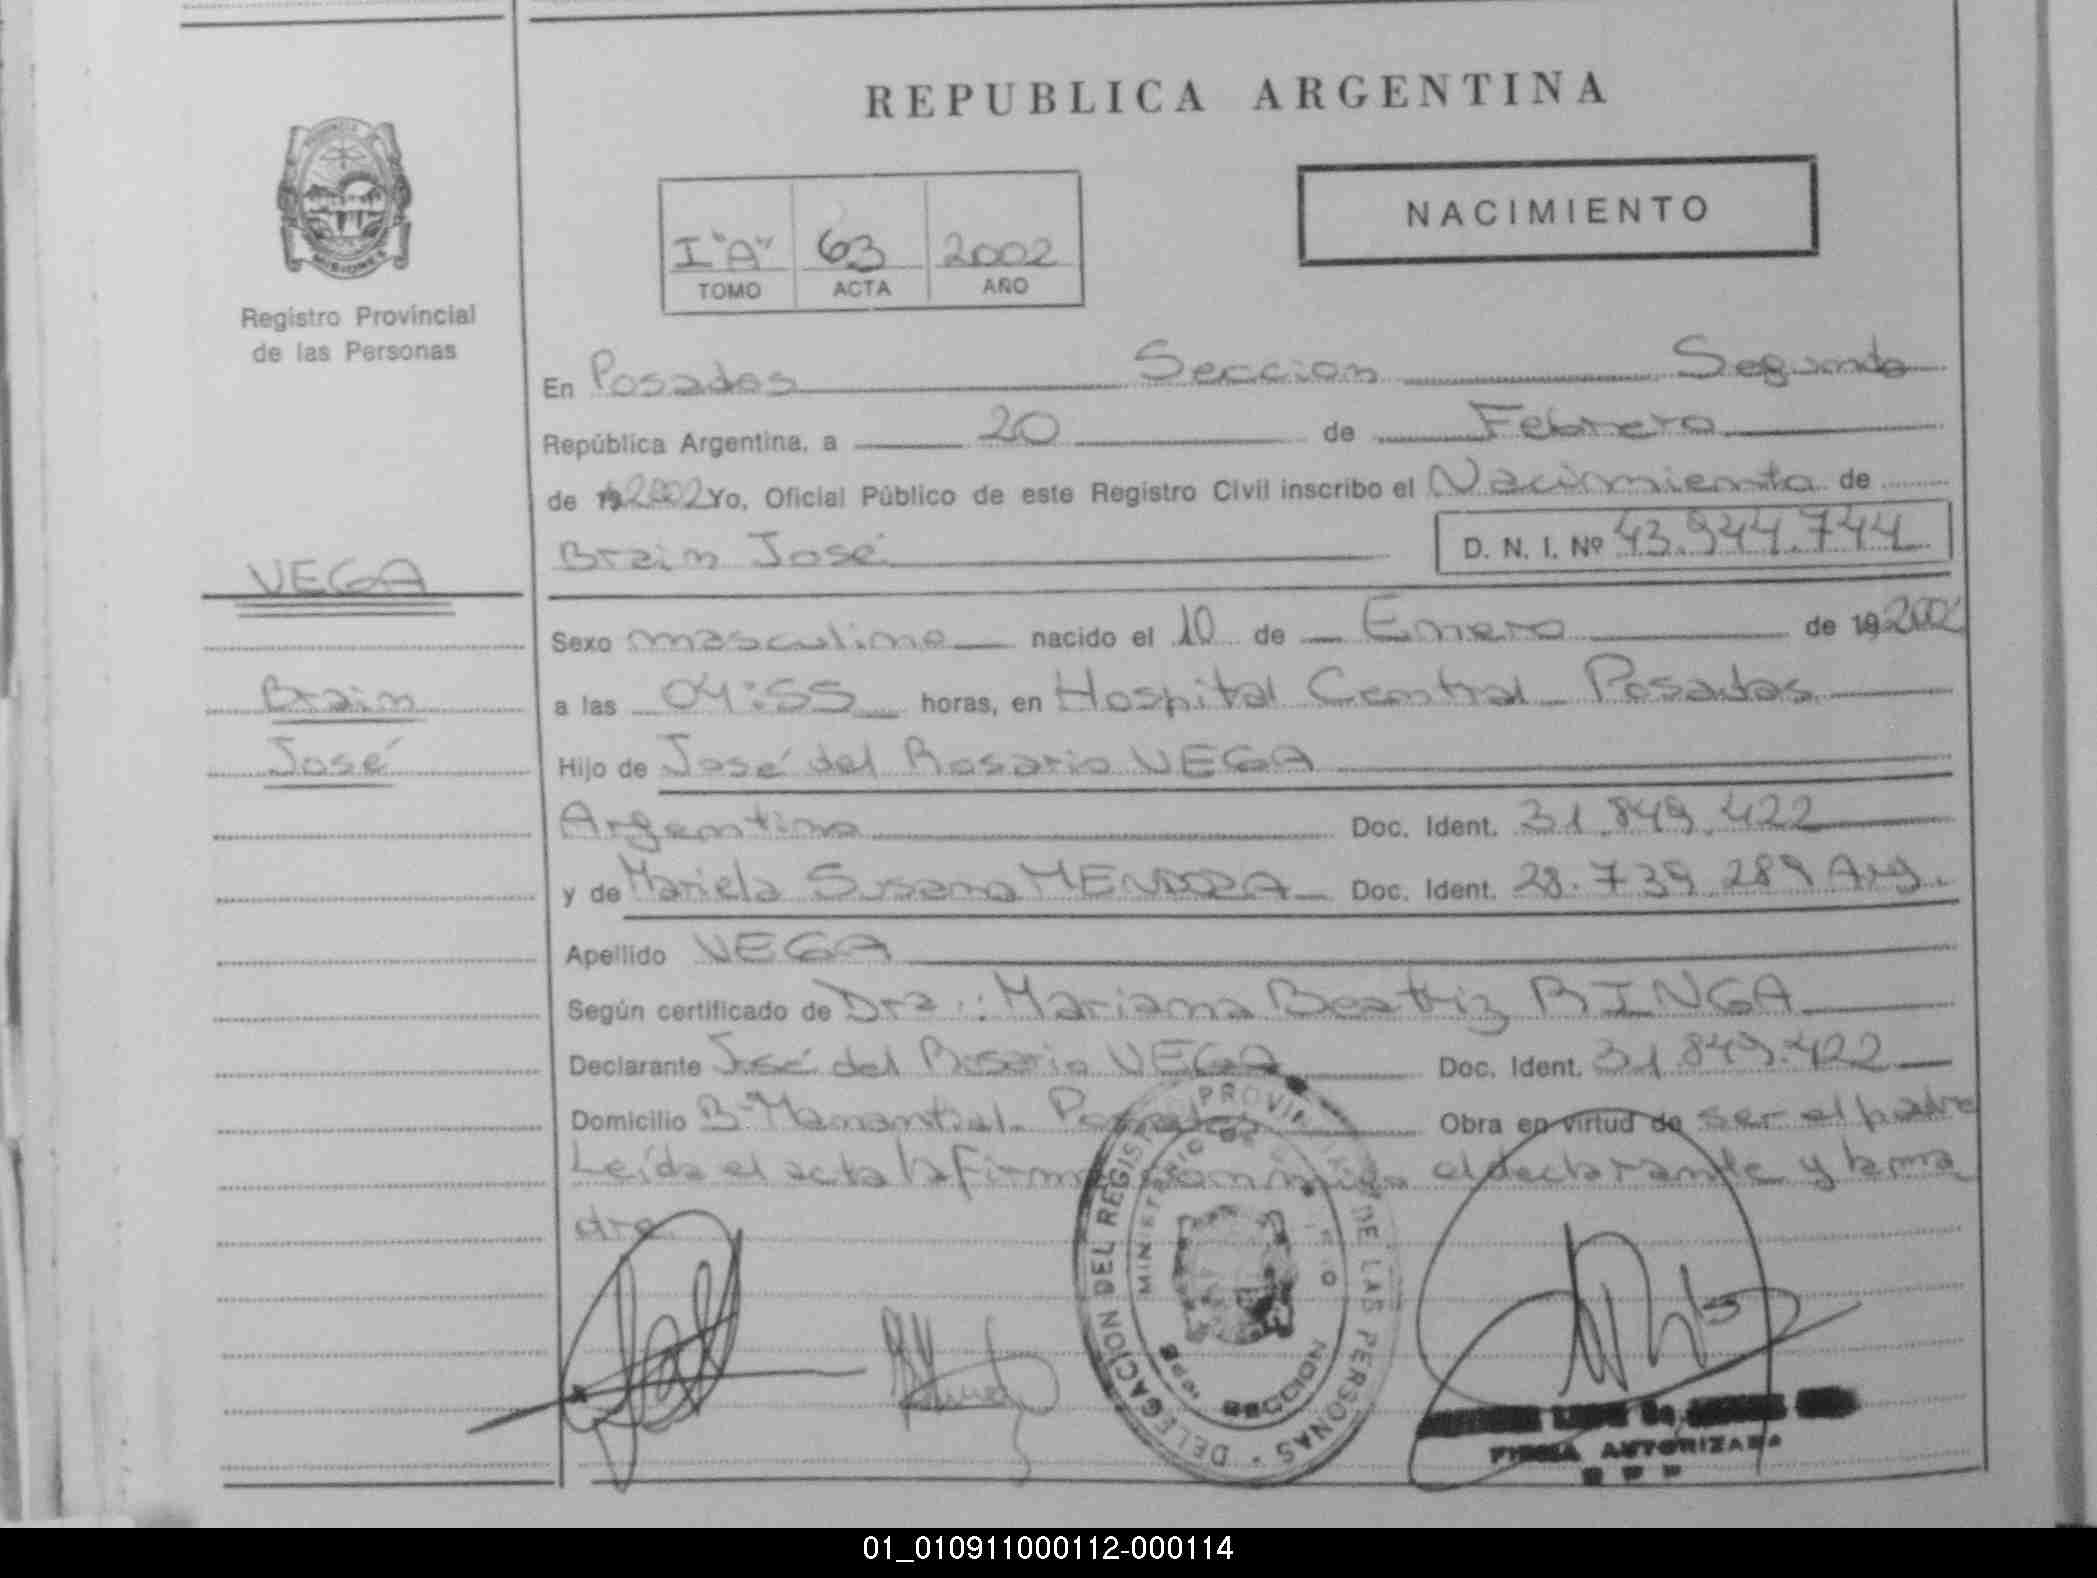 REPUBLICA ARGENTINA
NACIMIENTO
I "A" 63 2002
TOMO ACTA AÑO
MISIONES
Registro Provincial
de las Personas
En Posadas Seccion Segunda
República Argentina, a 20 de Febrero
de 192002 Yo, Oficial Público de este Registro Civil inscribo el Nacimiento de
Brain José D. N. I. Nº 43.944.744
VEGA
Brain
José
Sexo masculino nacido el 10 de Enero de 192002
a las 04:55 horas, en Hospital Central Posadas
Hijo de José del Rosario VEGA
Argentino Doc. Ident. 31.849.422
y de Mariela Susana MENDOZA Doc. Ident. 28.739.289 Arg.
Apellido VEGA
Según certificado de Dra.: Mariana Beatriz BINGA
Declarante José del Rosario VEGA Doc. Ident. 31.849.422
Domicilio Bº Manantial. Posadas Obra en virtud de ser el padre
Leída el acta la firma conmigo el declarante y la ma
dre.
DELEGACION DEL REGISTRO PROVINCIAL DE LAS PERSONAS
MINISTERIO DE
SECCION
FIRMA AUTORIZADA
01_010911000112-000114